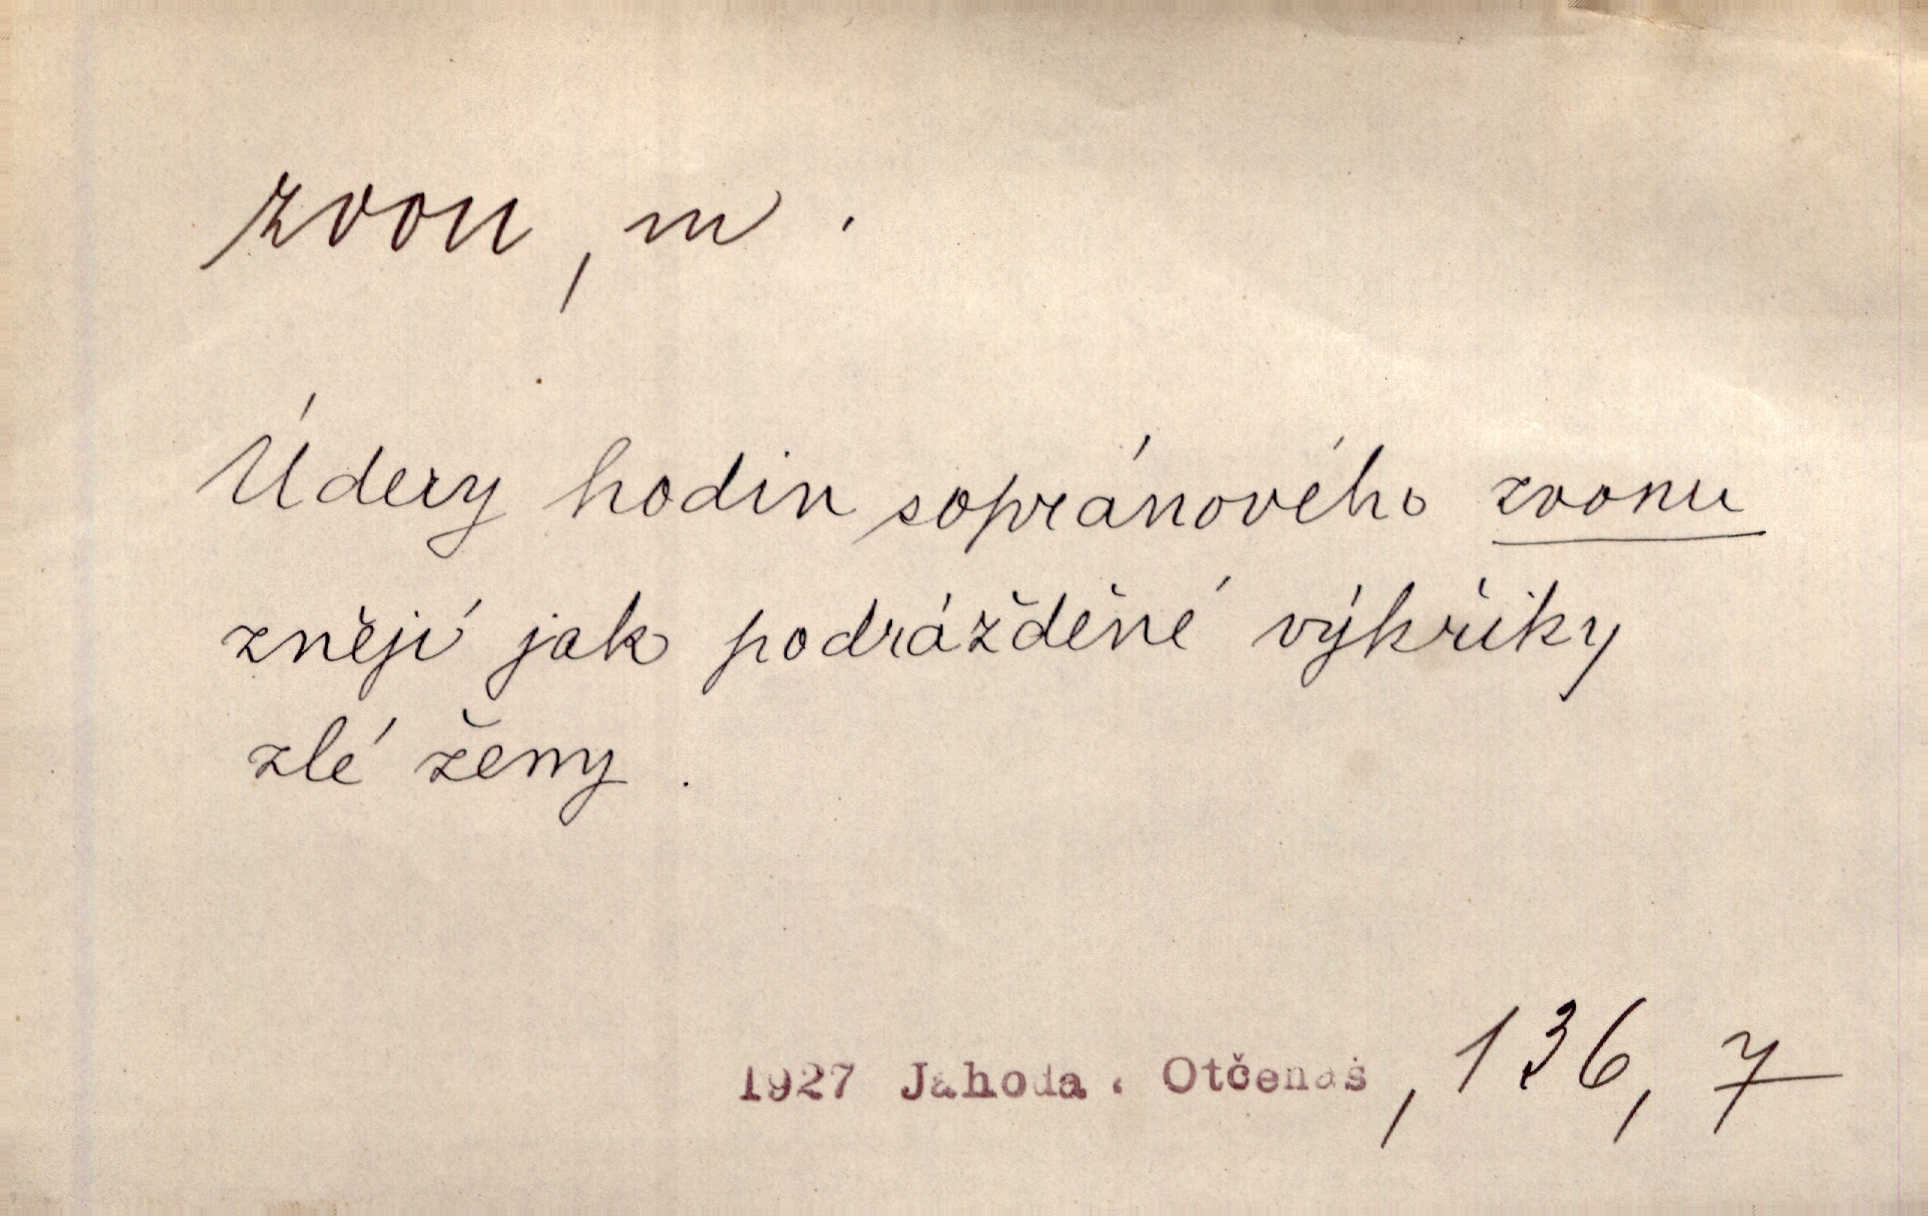 zvon, m.
Údery hodin sopránového zvonu
znějí jak podrážděné výkřiky
zlé ženy.
1927 Jahoda. Otčenáš, 136, 7